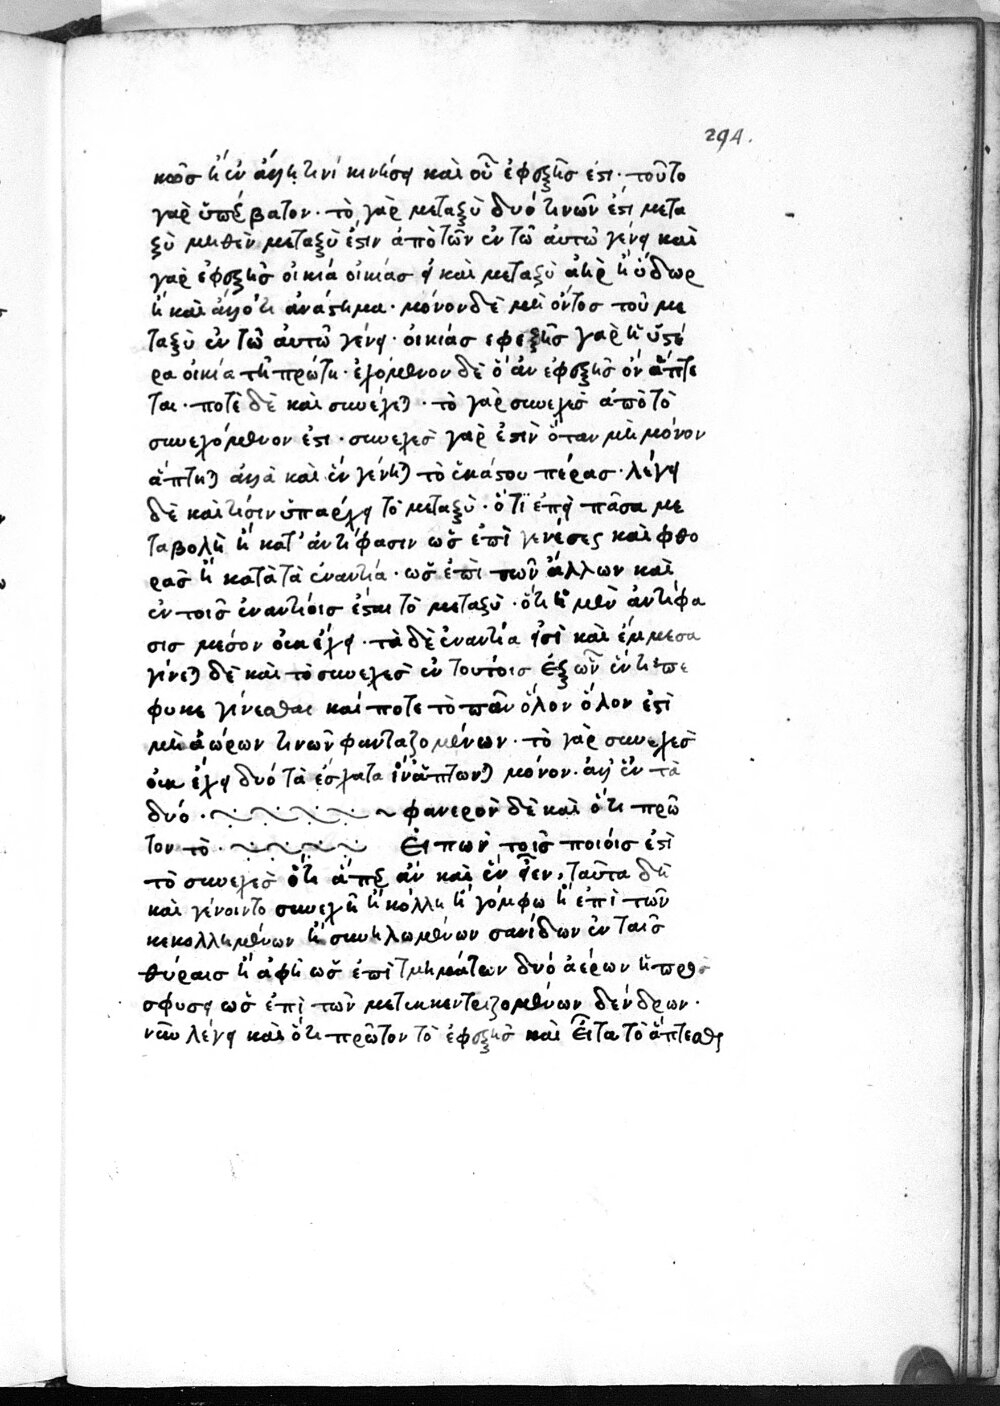 294.
κῶς ἢ ἐν ἄλλῃ τινὶ κινήσει καὶ οὗ ἐφεξῆς ἐστι · τοῦτο
γὰρ ὕπερβατον · τὸ γὰρ μεταξὺ δυό τινῶν ἐστι μετα
ξὺ μηθὲν μεταξύ ἐστιν ἀπὸ τῶν ἐν τῶ αὐτῶ γένει καὶ
γὰρ ἐφεξῆς οἰκία οἰκίας εἰ καὶ μεταξὺ ἀὴρ ἢ ὕδωρ
ἢ καὶ ἄλλό τι ἀνάστημα · μόνον δὲ μὴ ὄντος τοῦ με
ταξὺ ἐν τῶ αὐτῶ γένει · οἰκίας εφεξῆς γὰρ ἡ ὕστέ
ρα οἰκία τῆ πρώτη · ἐχόμενον δὲ ὃ ἂν ἐφεξῆς ὂν ἅπτε
ται · ποτὲ δὲ καὶ συνέχεται · τὸ γὰρ συνεχὲς ἀπὸ τὸ
συνεχόμενον ἐστι · συνεχὲς γὰρ ἐστὶν ὅταν μὴ μόνον
ἅπτηται ἀλλὰ καὶ ἓν γένηται τὸ ἑκάστου πέρας · λέγει
δὲ καὶ τίσιν ὑπάρχει τὸ μεταξύ · ὅτι ἐπεὶ πᾶσα με
ταβολὴ ἢ κατ' ἀντίφασιν ὡς ἐπὶ γενέσεως καὶ φθο
ρᾶς ἢ κατὰ τὰ ἐναντία · ὡς ἐπὶ τῶν ἄλλων καὶ
ἐν τοῖς ἐναντίοις ἔσται τὸ μεταξύ · ὅτι ἡ μὲν ἀντίφα
σις μέσον οὐκ ἔχει · τὰ δὲ ἐναντία εἰσὶ καὶ ἔμμεσα
γίνεται δὲ καὶ τὸ συνεχὲς ἐν τούτοις ἐξ ὧν ἕν τι πε
φυκε γίνεσθαι καί ποτε τὸ πᾶν ὅλον ὅλον ἐστὶ
μὴ ἀώρων τινῶν φανταζομένων · τὸ γὰρ συνεχὲς
οὐκ ἔχει δυό τὰ ἔσχατα ἵν' ἅπτωνται μόνον · ἀλλ' ἓν τὰ
δύο · φανερὸν δὲ καὶ ὅτι πρῶ
τον τὸ · Εἰπὼν τοῖς ποίοις ἐστὶ
τὸ συνεχὲς ὅτι ἅπερ ἂν καὶ ἓν εἶεν, ταῦτα δὴ
καὶ γένοιντο συνεχῆ ἢ κόλλη ἢ γόμφω ἢ ἐπὶ τῶν
κεκολλημένων ἢ συνηλωμένων σανίδων ἐν ταῖς
θύραις ἢ ἁφῆ ὡς ἐπὶ τμημάτων δυό ἀέρων ἢ προσ
σφυσει ὡς ἐπὶ τῶν μετεκκεντριζομένων δένδρων ·
νῦν λέγει καὶ ὅτι πρῶτον τὸ ἐφεξῆς καὶ εἶτα τὸ ἅπτεσθαι